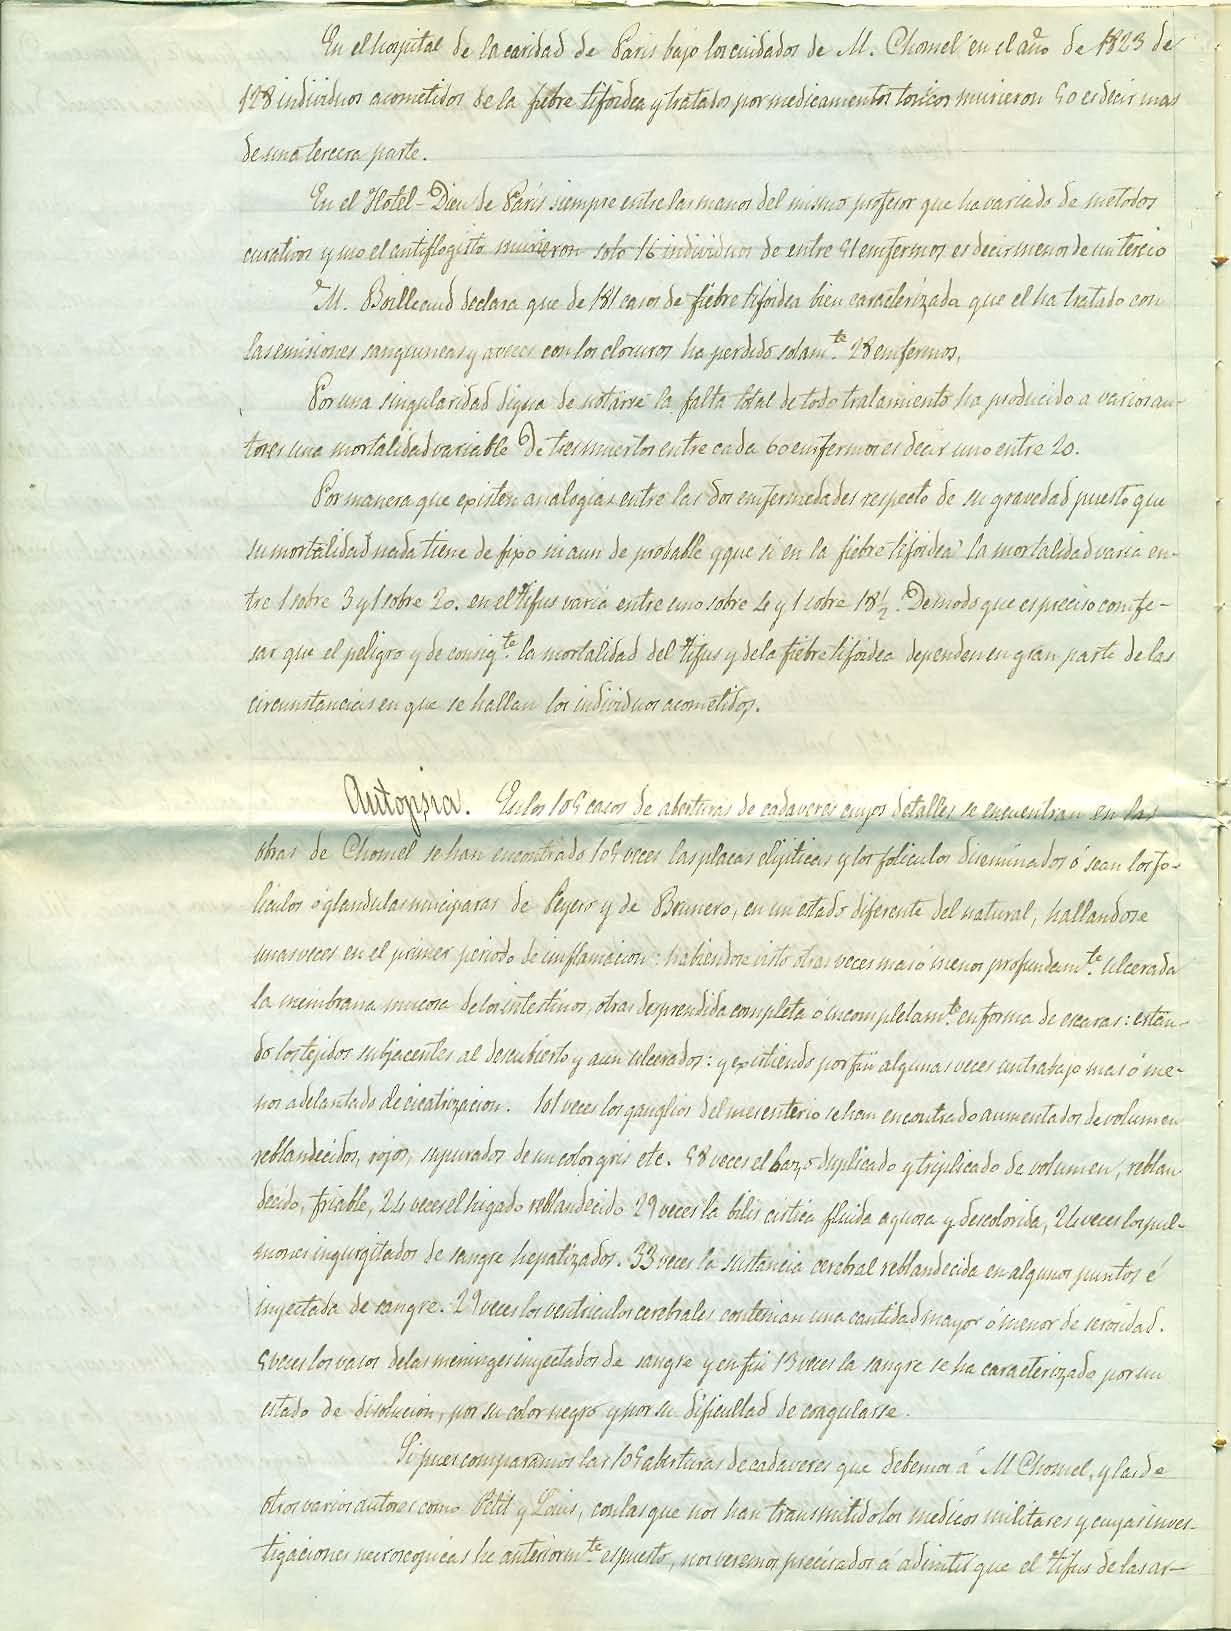 En el hospital de la caridad de Paris bajo los cuidados de M. Chomel en el año de 1823 de
128 individuos acometidos de la fiebre tifóidea y tratados por medicamentos tonicos murieron 50 es decir mas
de una tercera parte.
En el Hotel-Dieu de Paris siempre entre las manos del mismo profesor que ha variado de metodos
curativos y uso el antiflogisto murieron solo 16 individuos de entre 51 enfermos es decir menos de un tercio
M. Boilleaud declara que de 181 casos de fiebre tifóidea bien caracterizada que el ha tratado con
las emisiones sanguineas y a veces con los cloruros ha perdido solam.te 28 enfermos.
Por una singularidad digna de notarse la falta total de todo tratamiento ha producido a varios au-
tores una mortalidad variable De tres muertos entre cada 60 enfermos es decir uno entre 20.
Por manera que existen analogias entre las dos enfermedades respecto de su gravedad puesto que
su mortalidad nada tiene de fixo ni aun de probable y que si en la fiebre tifóidea la mortalidad varia en-
tre 1 sobre 3 y 1 sobre 20. en el tifus varia entre uno sobre 4 y 1 sobre 18½. De modo que es preciso confe-
sar que el peligro y de consig.te la mortalidad del tifus y de la fiebre tifóidea dependen en gran parte de las
circunstancias en que se hallan los individuos acometidos.
Autopsia. En los 105 casos de aberturas de cadaveres cuyos detalles se encuentran en las
obras de Chomel se han encontrado 105 veces las placas elipticas y los foliculos diseminados ó sean los fo-
liculos ó glandulas muciparas de Peyero y de Brunero, en un estado diferente del natural, hallandose
unas veces en el primer periodo de inflamacion: habiendose visto otras veces mas ó menos profundam.te ulcerada
la membrana mucosa de los intestinos, otras desprendida completa ó incompletam.te en forma de escaras: estan-
do los tejidos subjacentes al descubierto y aun ulcerados: y existiendo por fin algunas veces un trabajo mas ó me-
nos adelantado de cicatrizacion. 101 veces los ganglios del mesenterio se han encontrado aumentados de volumen
reblandecidos, rojos, supurados de un color gris etc. 58 veces el bazo duplicado y triplicado de volumen, reblan
decido, friable, 24 veces el higado reblandecido 29 veces la bilis cistica fluida aquosa y descolorida, 24 veces los pul-
mones ingurgitados de sangre hepatizados. 33 veces la sustancia cerebral reblandecida en algunos puntos é
inyectada de sangre. 29 veces los ventriculos cerebrales contenian una cantidad mayor ó menor de serosidad.
5 veces los vasos de las meninges inyectados de sangre y en fin 13 veces la sangre se ha caracterizado por un
estado de disolucion, por su color negro y por su dificultad de coagularse.
Si pues comparamos las 105 aberturas de cadaveres que debemos á M Chomel, y las de
otros varios autores como Petit y Louis, con las que nos han transmitido los medicos militares y cuyas inves-
tigaciones necroscopicas he anteriorm.te espuesto, nos veremos precisados á admitir que el tifus de las ar-